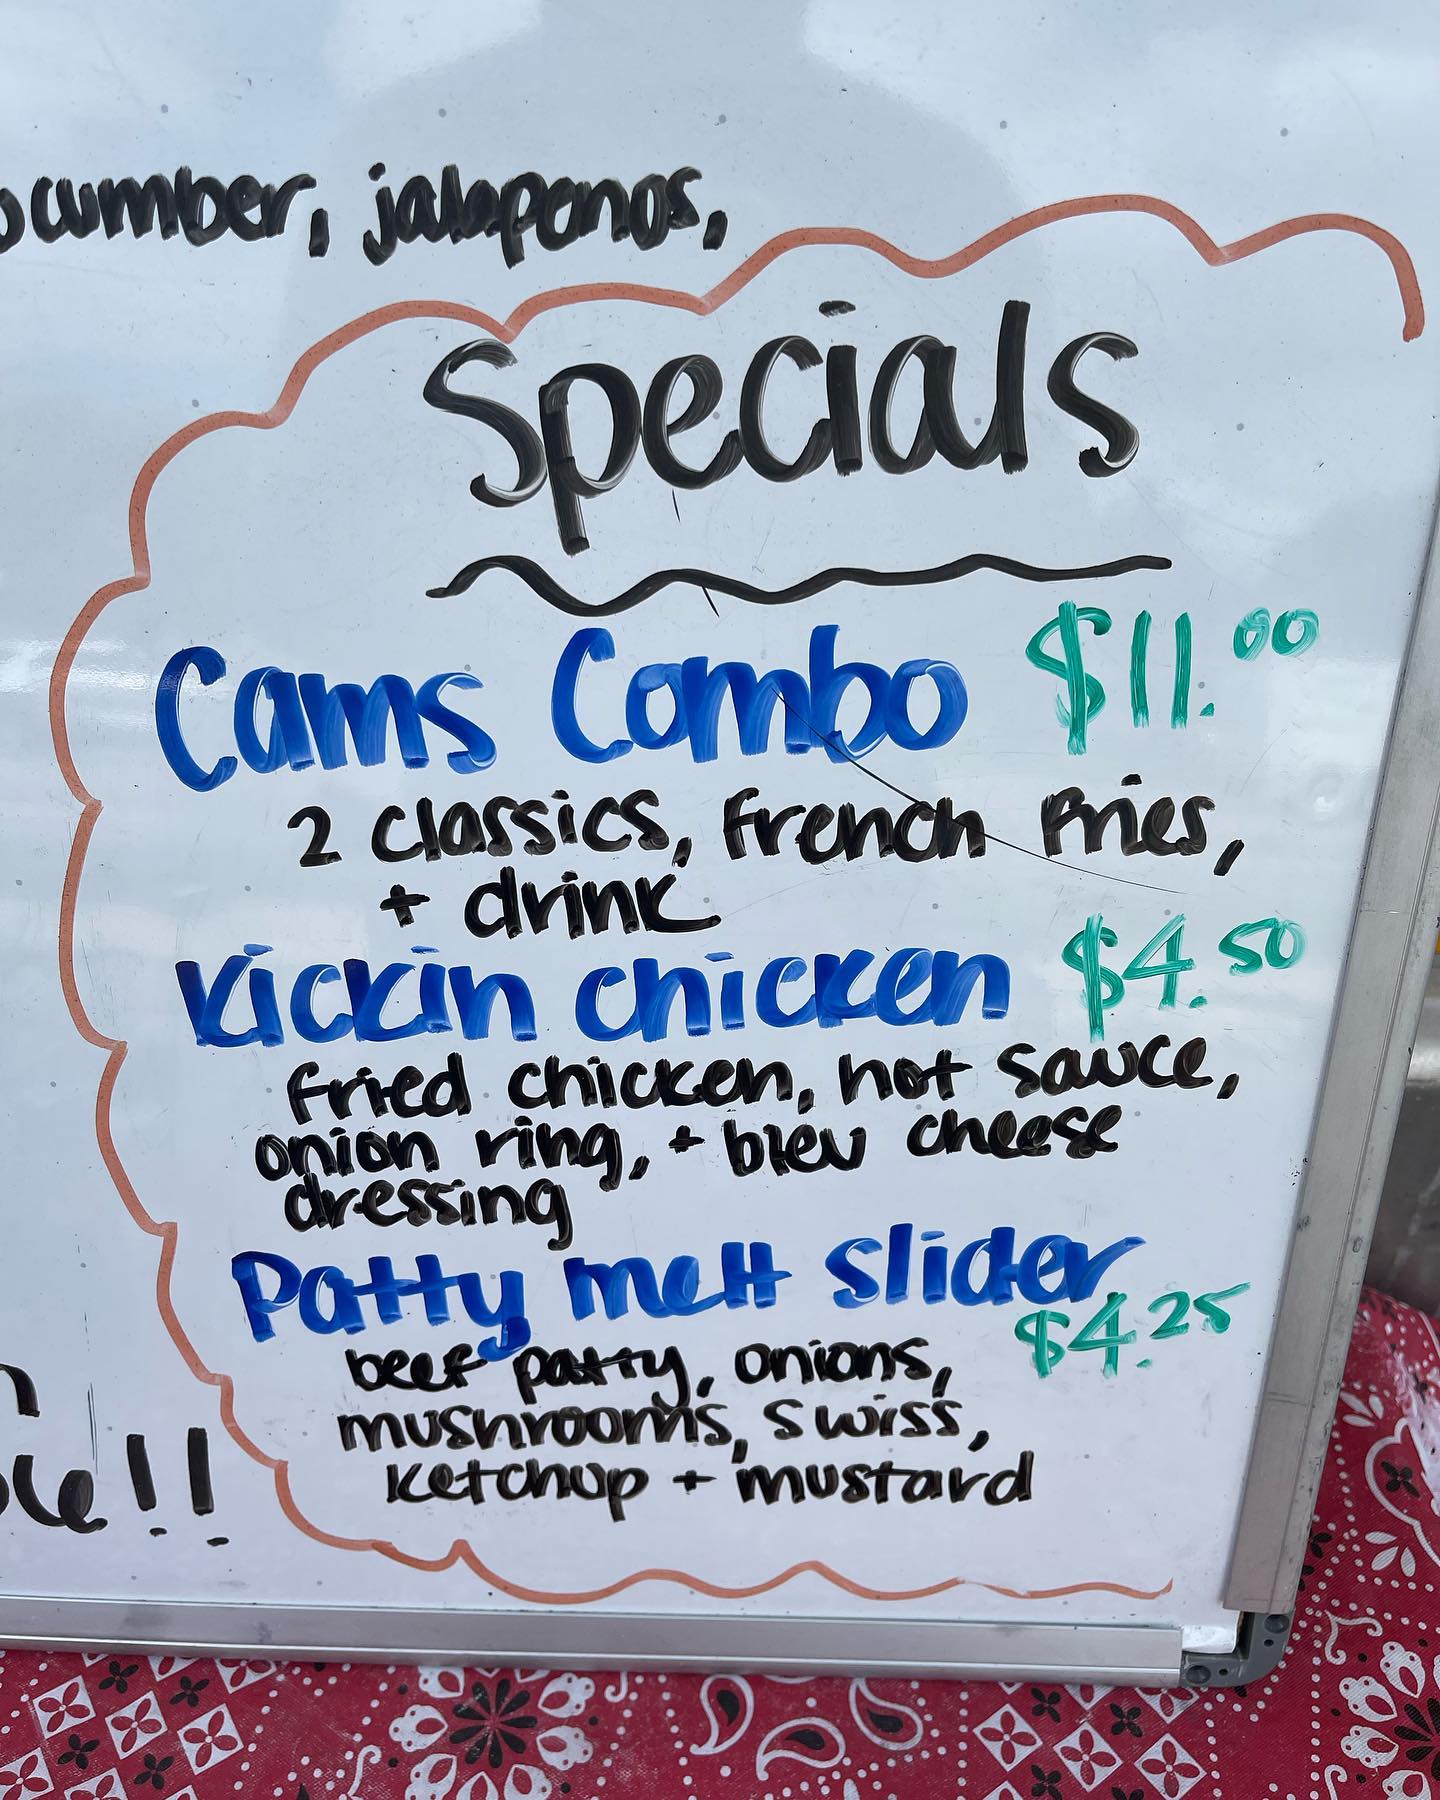 jalapenos,
Specials
Cams Combo $11.00
2 classics, french fries,
+ drink
Kickin chicken $4.50
fried chicken, hot sauce,
onion ring, + bleu cheese
dressing
Patty melt slider
$4.25
beef patty, onions,
mushrooms, swiss,
ketchup + mustard